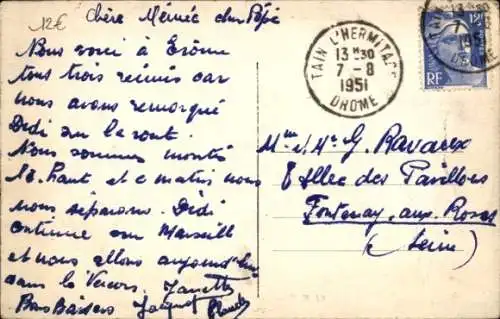 12€
Chère Mémée cher Pépé
Nous voici à Érôme
tous trois réunis car
nous avons remorqué
Dédi sur la route.
Nous sommes montés
là haut et ce matin nous
nous séparons. Dédi
continue sur Marseille
et nous allons aujourd'hui
dans le Vercors.
Bons Baisers
TAIN L'HERMITAGE
13 H 30
7 - 8
1951
DROME
12F
RF
Mme et Mr G.
8 Allée des Pavillons
Fontenay-aux-Roses
(Seine)